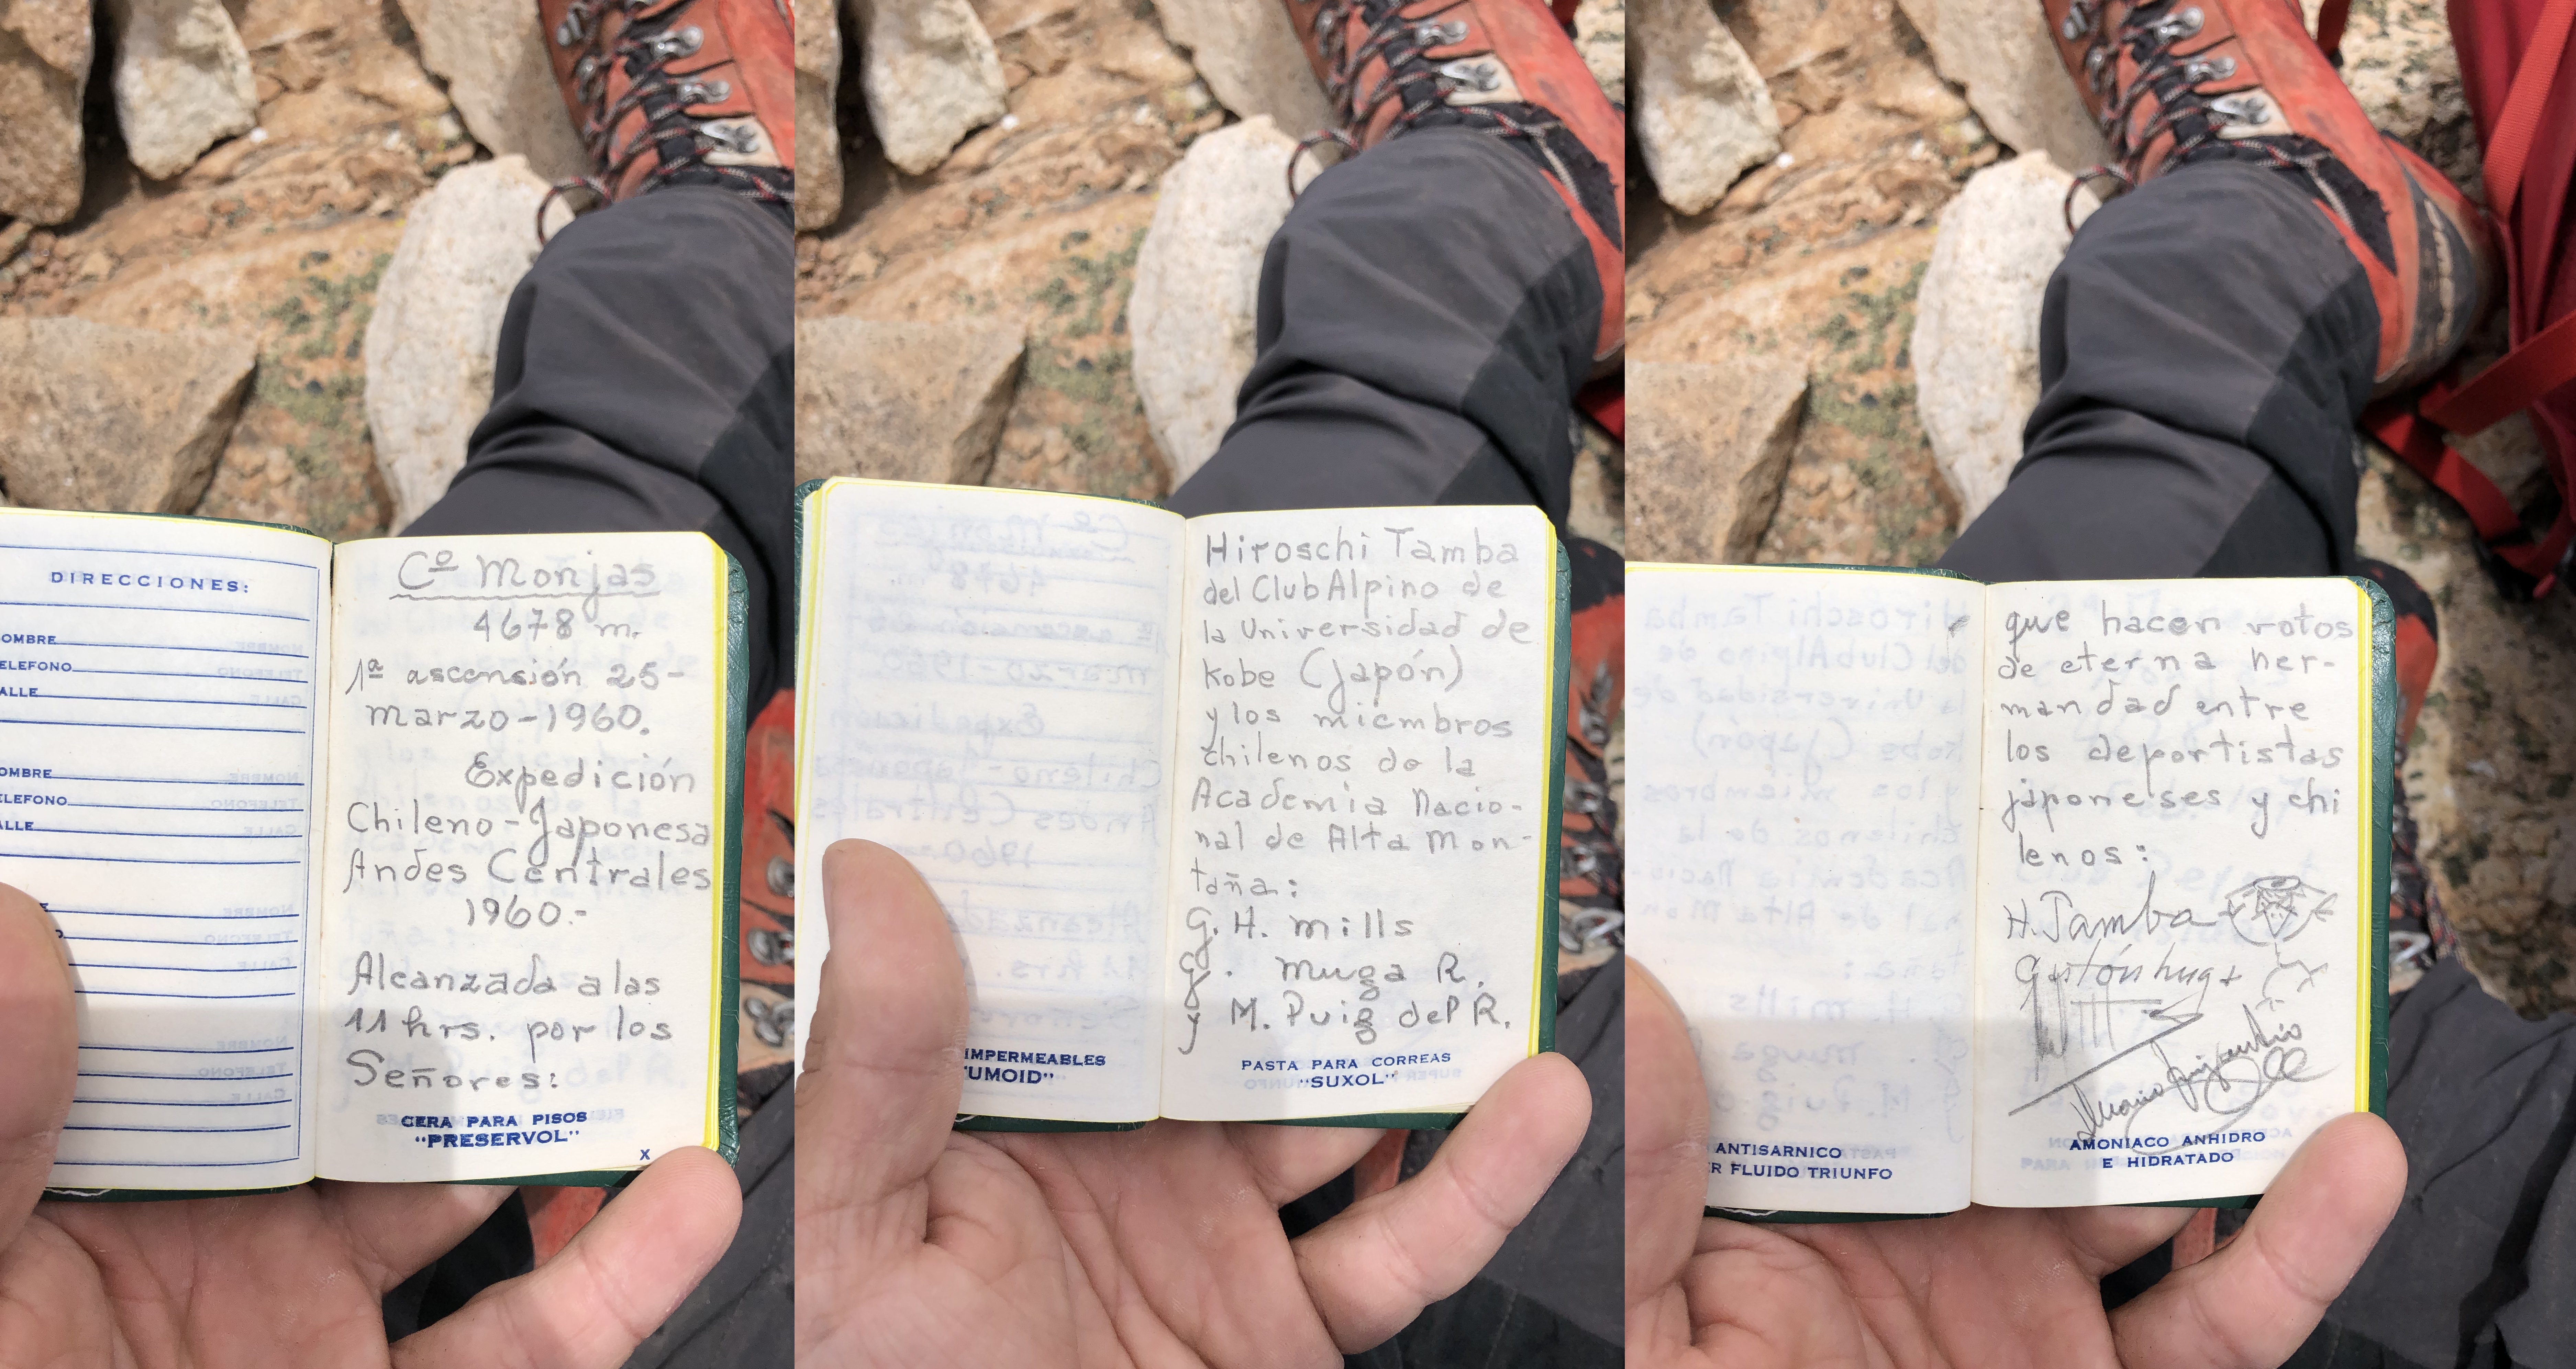 DIRECCIONES:
OMBRE
ELEFONO
ALLE
OMBRE
ELEFONO
ALLE
Cº Monjas
4678 m.
1ª ascensión 25-
marzo-1960.
Expedición
Chileno-Japonesa
Andes Centrales
1960.-
Alcanzada a las
11 hrs. por los
Señores:
CERA PARA PISOS
"PRESERVOL"
X
IMPERMEABLES
UMOID"
Hiroschi Tamba
del Club Alpino de
la Universidad de
Kobe (Japón)
y los miembros
chilenos de la
Academia Nacio-
nal de Alta Mon-
taña:
G. H. Mills
G. Muga R.
y M. Puig del R.
PASTA PARA CORREAS
"SUXOL"
ANTISARNICO
R FLUIDO TRIUNFO
que hacen votos
de eterna her-
mandad entre
los deportistas
japoneses y chi
lenos:
H. Tamba
Gastón Muga
AMONIACO ANHIDRO
E HIDRATADO